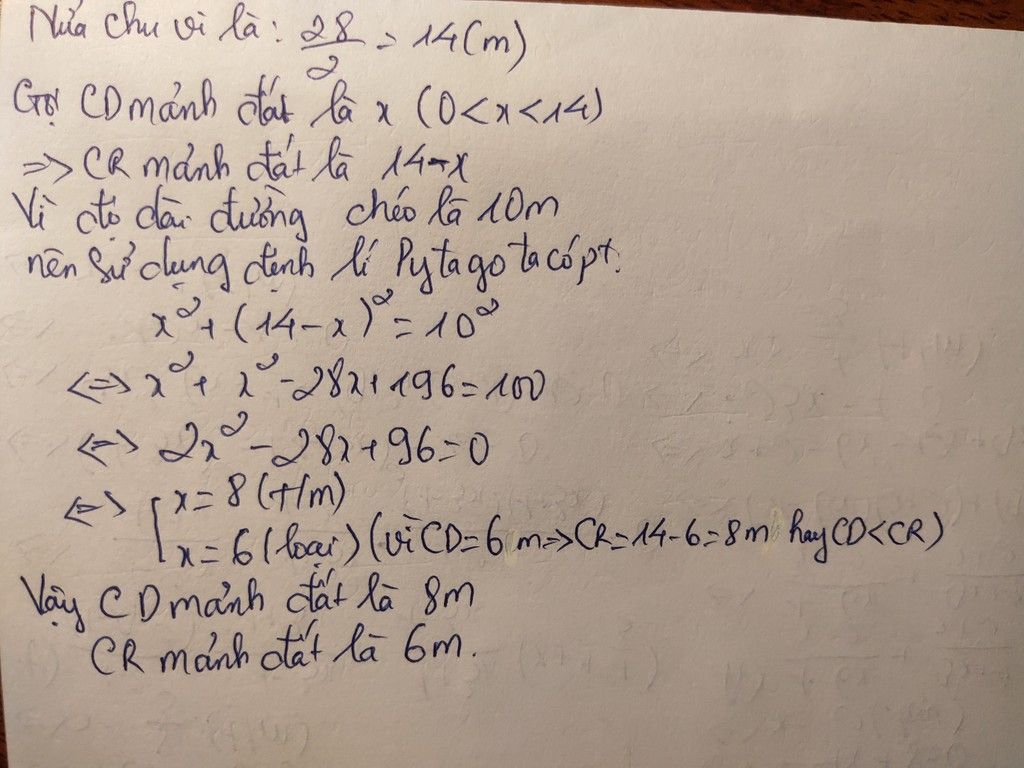 Nửa chu vi là: 28/2 = 14(m)
Gọi CD mảnh đất là x (0<x<14)
=> CR mảnh đất là 14-x
Vì độ dài đường chéo là 10m
nên sử dụng định lí Pytago ta có pt:
x² + (14-x)² = 10²
<=> x² + x² - 28x + 196 = 100
<=> 2x² - 28x + 96 = 0
<=> [ x = 8 (t/m)
x = 6 (loại) (vì CD = 6 m => CR = 14-6 = 8m hay CD<CR)
Vậy CD mảnh đất là 8m
CR mảnh đất là 6m.